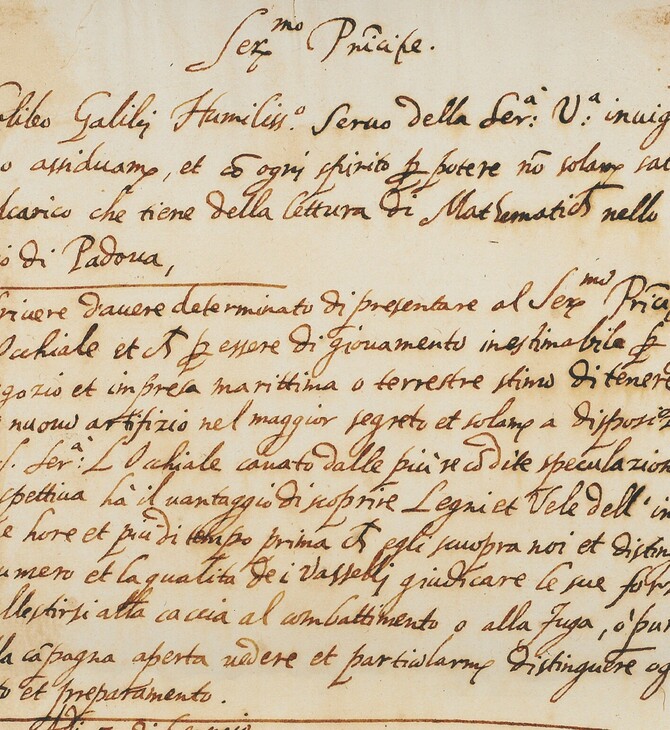 Serᵐᵒ Prĩcipe.
alileo Galilej Humilissᵒ. Servo della Serᵃ: Vᵃ: invig
o assiduamᵉ, et cõ ogni spirito ꝑ potere nõ solamᵉ sat
lcarico che tiene della lettura di Mathematichᵉ nello
io di Padova,
crivere d'avere determinato di presentare al Serᵐᵒ Prĩci
Occhiale et chᵉ ꝑ essere di giovamento inestimabile ꝑ
egozio et impresa marittima o terrestre stimo di tenere
nuovo artifizio nel maggior segreto et solamᵉ a disposiz
S. Serᵃ: L'Occhiale cavato dalle più recõdite speculazion
spettiva ha il vantaggio di scoprire Legni et Vele dell'in
e hore et più di tempo prima chᵉ egli scuopra noi et distin
umero et la qualita de i Vasselli giudicare le sue for
llestirsi alla caccia al combattimento o alla fuga, o pur
la cãpagna aperta vedere et particularmᵉ distinguere og
to et preparamento.
di Gennaio